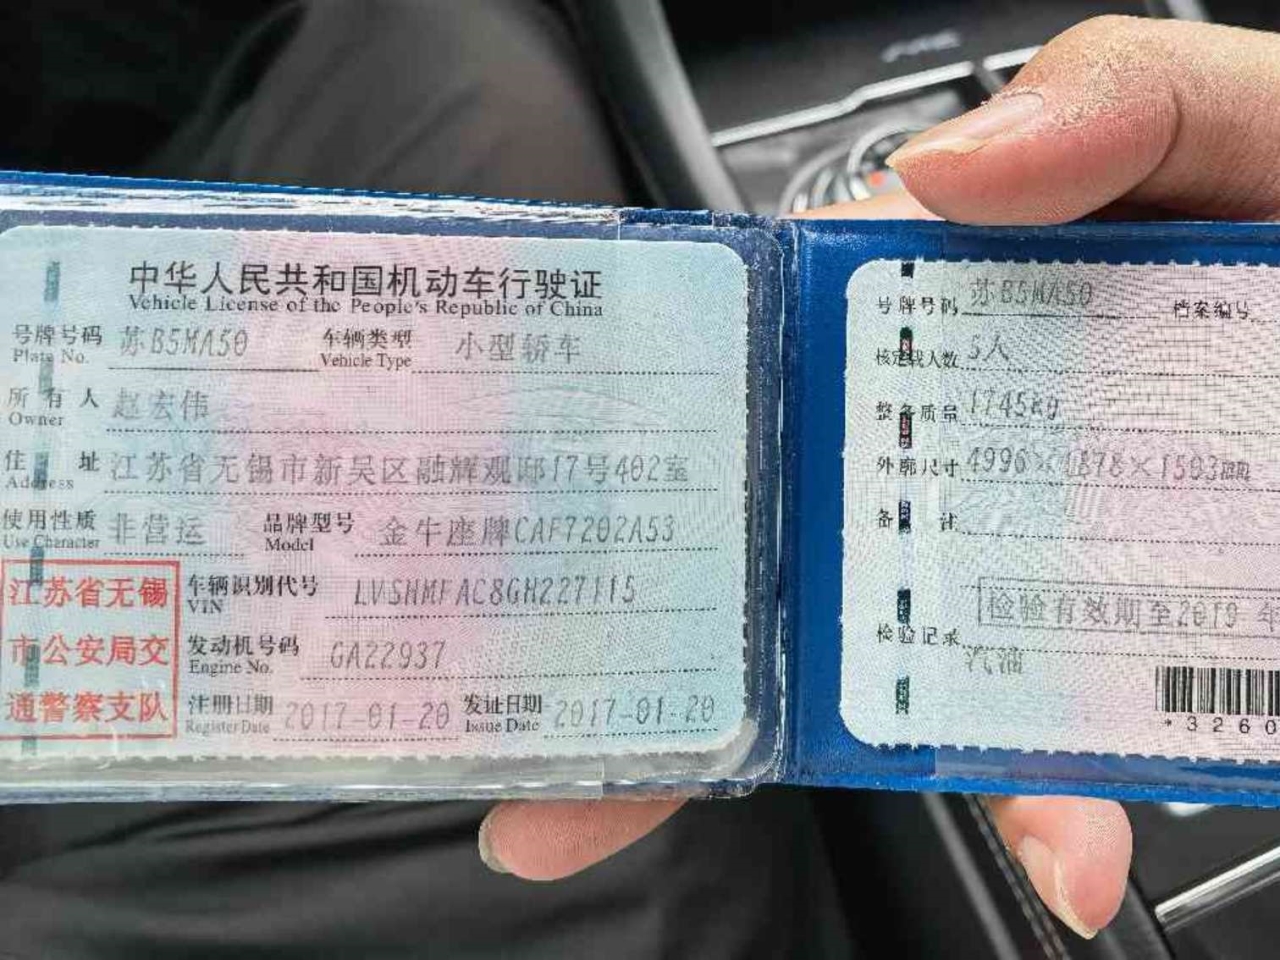 中华人民共和国机动车行驶证
Vehicle License of the People's Republic of China
号牌号码 苏B5MA50 车辆类型 小型轿车
Plate No. Vehicle Type
所有人 赵宏伟
Owner
住址 江苏省无锡市新吴区融辉观邸17号402室
Address
使用性质 非营运 品牌型号 金牛座牌CAF7202A53
Use Character Model
江苏省无锡
市公安局交
通警察支队
车辆识别代号 LVSHMFAC8GH227115
VIN
发动机号码 GA22937
Engine No.
注册日期 2017-01-20 发证日期 2017-01-20
Register Date Issue Date
号牌号码 苏B5MA50 档案编号
核定载人数 5人
整备质量 1745kg
外廓尺寸 4996×1878×1503mm
备注
检验有效期至2019年
检验记录
汽油
*3260